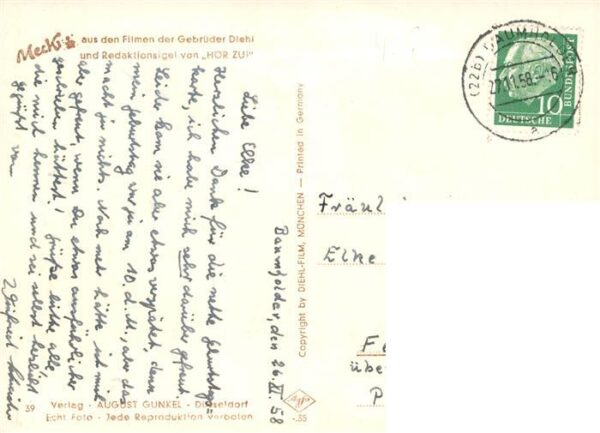 Mecki
aus den Filmen der Gebrüder Diehl
und Redaktionsigel von „HÖR ZU!"
Liebe Elke!
Herzlichen Dank für die nette Geburtstags=
karte, ich habe mich sehr darüber gefreut.
Leider kam sie aber etwas verspätet, denn
mein Geburtstag war ja am 10. d.M., aber das
macht ja nichts. Noch mehr hätte ich mich
aber gefreut, wenn Du etwas ausführlicher
geschrieben hättest! Grüße bitte alle
die mich kennen und sei selbst herzlich
gegrüßt von
Baumholder, den 26. XI. 58
Copyright by DIEHL-FILM, MÜNCHEN — Printed in Germany
Agfa
-.35
39
Verlag · AUGUST GUNKEL · Düsseldorf
Echt Foto · Jede Reproduktion verboten
(22b) BAUMHOLDER
27.11.58
a
10
DEUTSCHE
BUNDESPOST
Fräul
Elke
Fe
übe
P